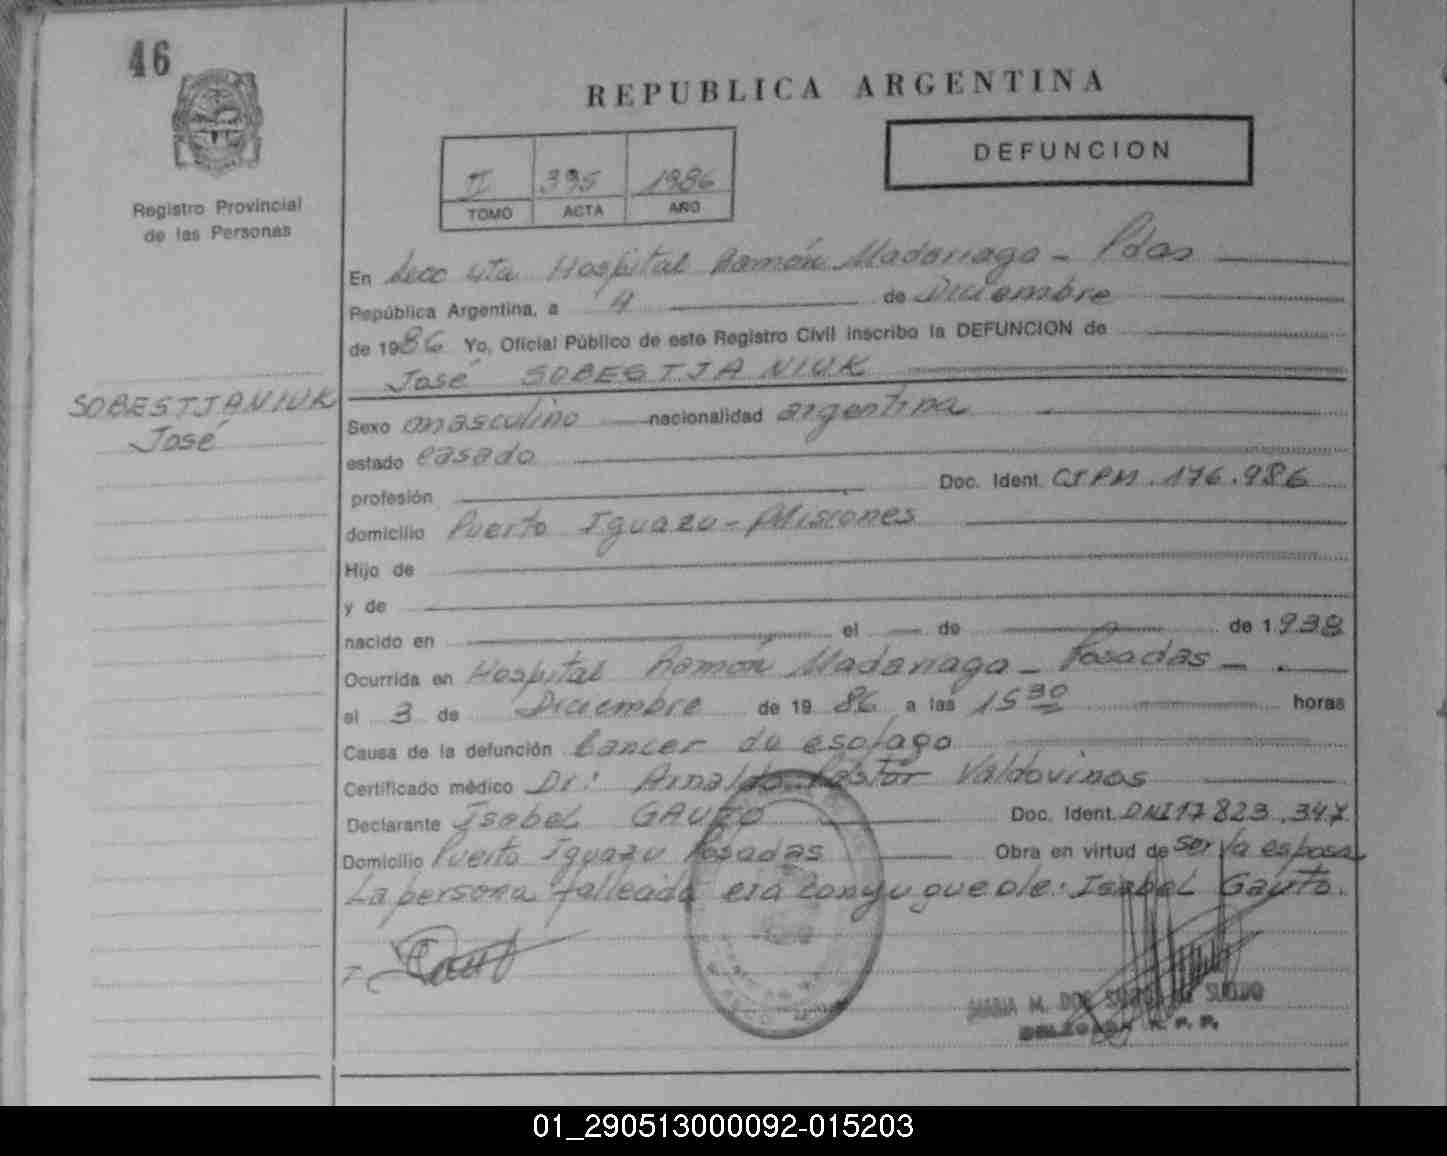 46
REPUBLICA ARGENTINA
DEFUNCION
II 395 1986
TOMO ACTA AÑO
Registro Provincial
de las Personas
En Secc 4ta Hospital Ramón Madariaga - Pdas
República Argentina, a 4 de Diciembre
de 1986 Yo, Oficial Público de este Registro Civil inscribo la DEFUNCION de
José SOBESTJANIUK
SOBESTJANIUK
José
Sexo masculino nacionalidad argentina
estado casado
profesión Doc. Ident. CIPM. 176.986
domicilio Puerto Iguazu - Misiones
Hijo de
y de
nacido en el de de 1938
Ocurrida en Hospital Ramón Madariaga - Posadas
el 3 de Diciembre de 1986 a las 15 30 horas
Causa de la defunción Cancer de esofago
Certificado médico Dr: Arnaldo Pastor Valdovinos
Declarante Isabel GAUTO Doc. Ident. DNI 17 823.347
Domicilio Puerto Iguazu Posadas Obra en virtud de ser la esposa
La persona fallecida era conyugue de: Isabel Gauto.
MARIA M. DOS
DELEGADA R. P. P.
01_290513000092-015203